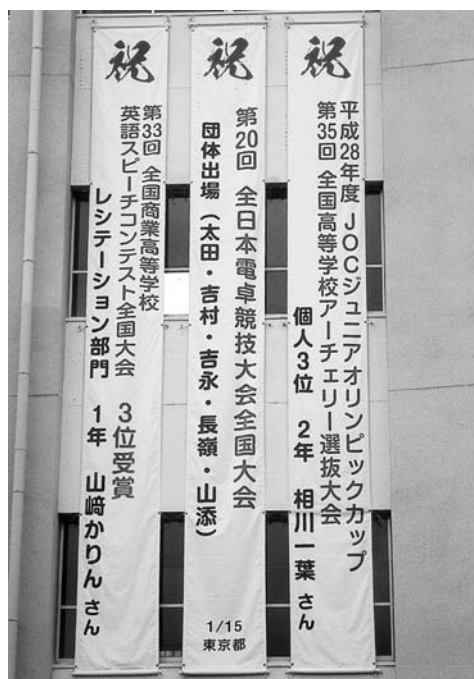 祝
平成28年度 JOCジュニアオリンピックカップ
第35回 全国高等学校アーチェリー選抜大会
個人3位 2年 相川一葉 さん
祝
第20回 全日本電卓競技大会全国大会
団体出場（太田・吉村・吉永・長嶺・山添）
1/15
東京都
祝
第33回 全国商業高等学校
英語スピーチコンテスト全国大会 3位受賞
レシテーション部門 1年 山﨑かりん さん